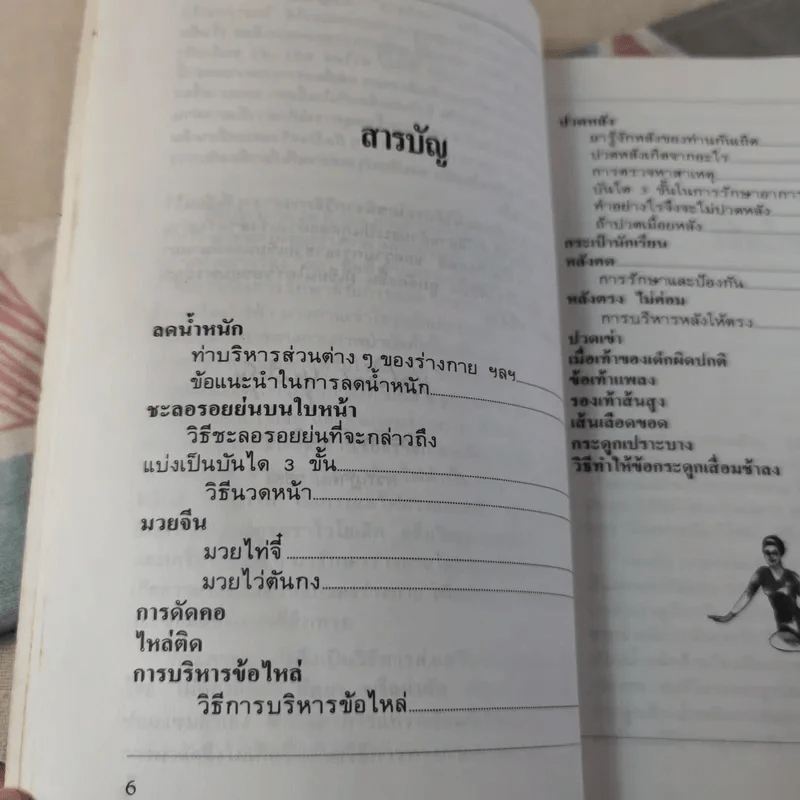 สารบัญ
ลดน้ำหนัก
ท่าบริหารส่วนต่าง ๆ ของร่างกาย ฯลฯ
ข้อแนะนำในการลดน้ำหนัก
ชะลอรอยย่นบนใบหน้า
วิธีชะลอรอยย่นที่จะกล่าวถึง
แบ่งเป็นบันได 3 ขั้น
วิธีนวดหน้า
มวยจีน
มวยไท่จี๋
มวยไว่ตันกง
การดัดคอ
ไหล่ติด
การบริหารข้อไหล่
วิธีการบริหารข้อไหล่
6
ปวดหลัง
มารู้จักหลังของท่านกันเถิด
ปวดหลังเกิดจากอะไร
การตรวจหาสาเหตุ
บันได 3 ขั้นในการรักษาอาการ
ทำอย่างไรจึงจะไม่ปวดหลัง
ถ้าปวดเมื่อยหลัง
กระเป๋านักเรียน
หลังคด
การรักษาและป้องกัน
หลังตรง ไม่ค่อม
การบริหารหลังให้ตรง
ปวดเข่า
เมื่อเท้าของเด็กผิดปกติ
ข้อเท้าแพลง
รองเท้าส้นสูง
เส้นเลือดขอด
กระดูกเปราะบาง
วิธีทำให้ข้อกระดูกเสื่อมช้าลง